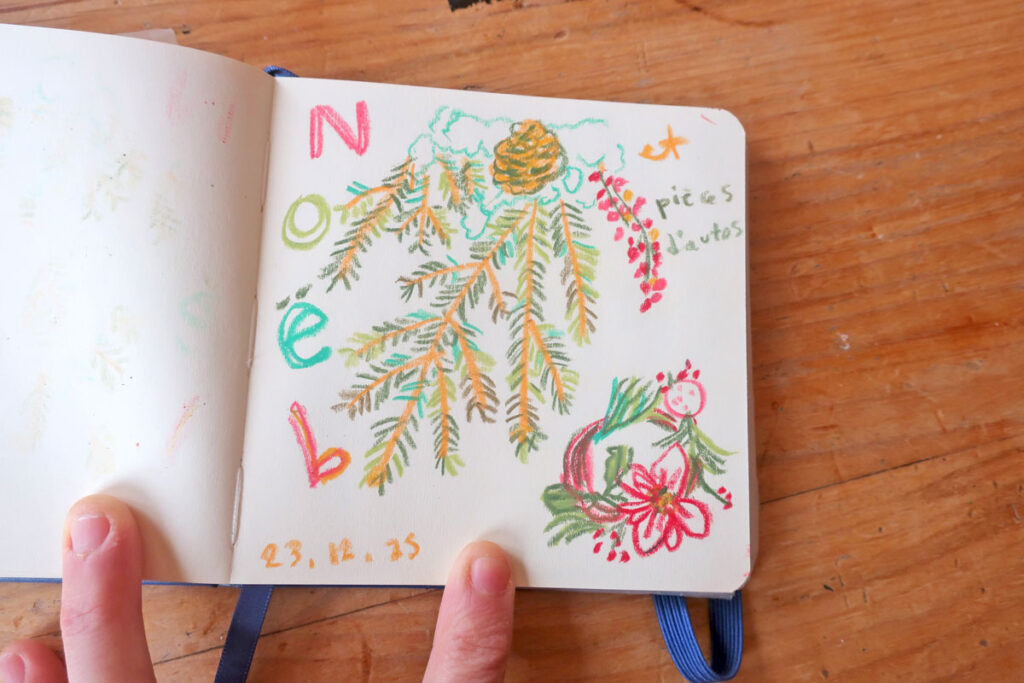 N
o
ë
b
et
pièces
d'autos
23.12.25